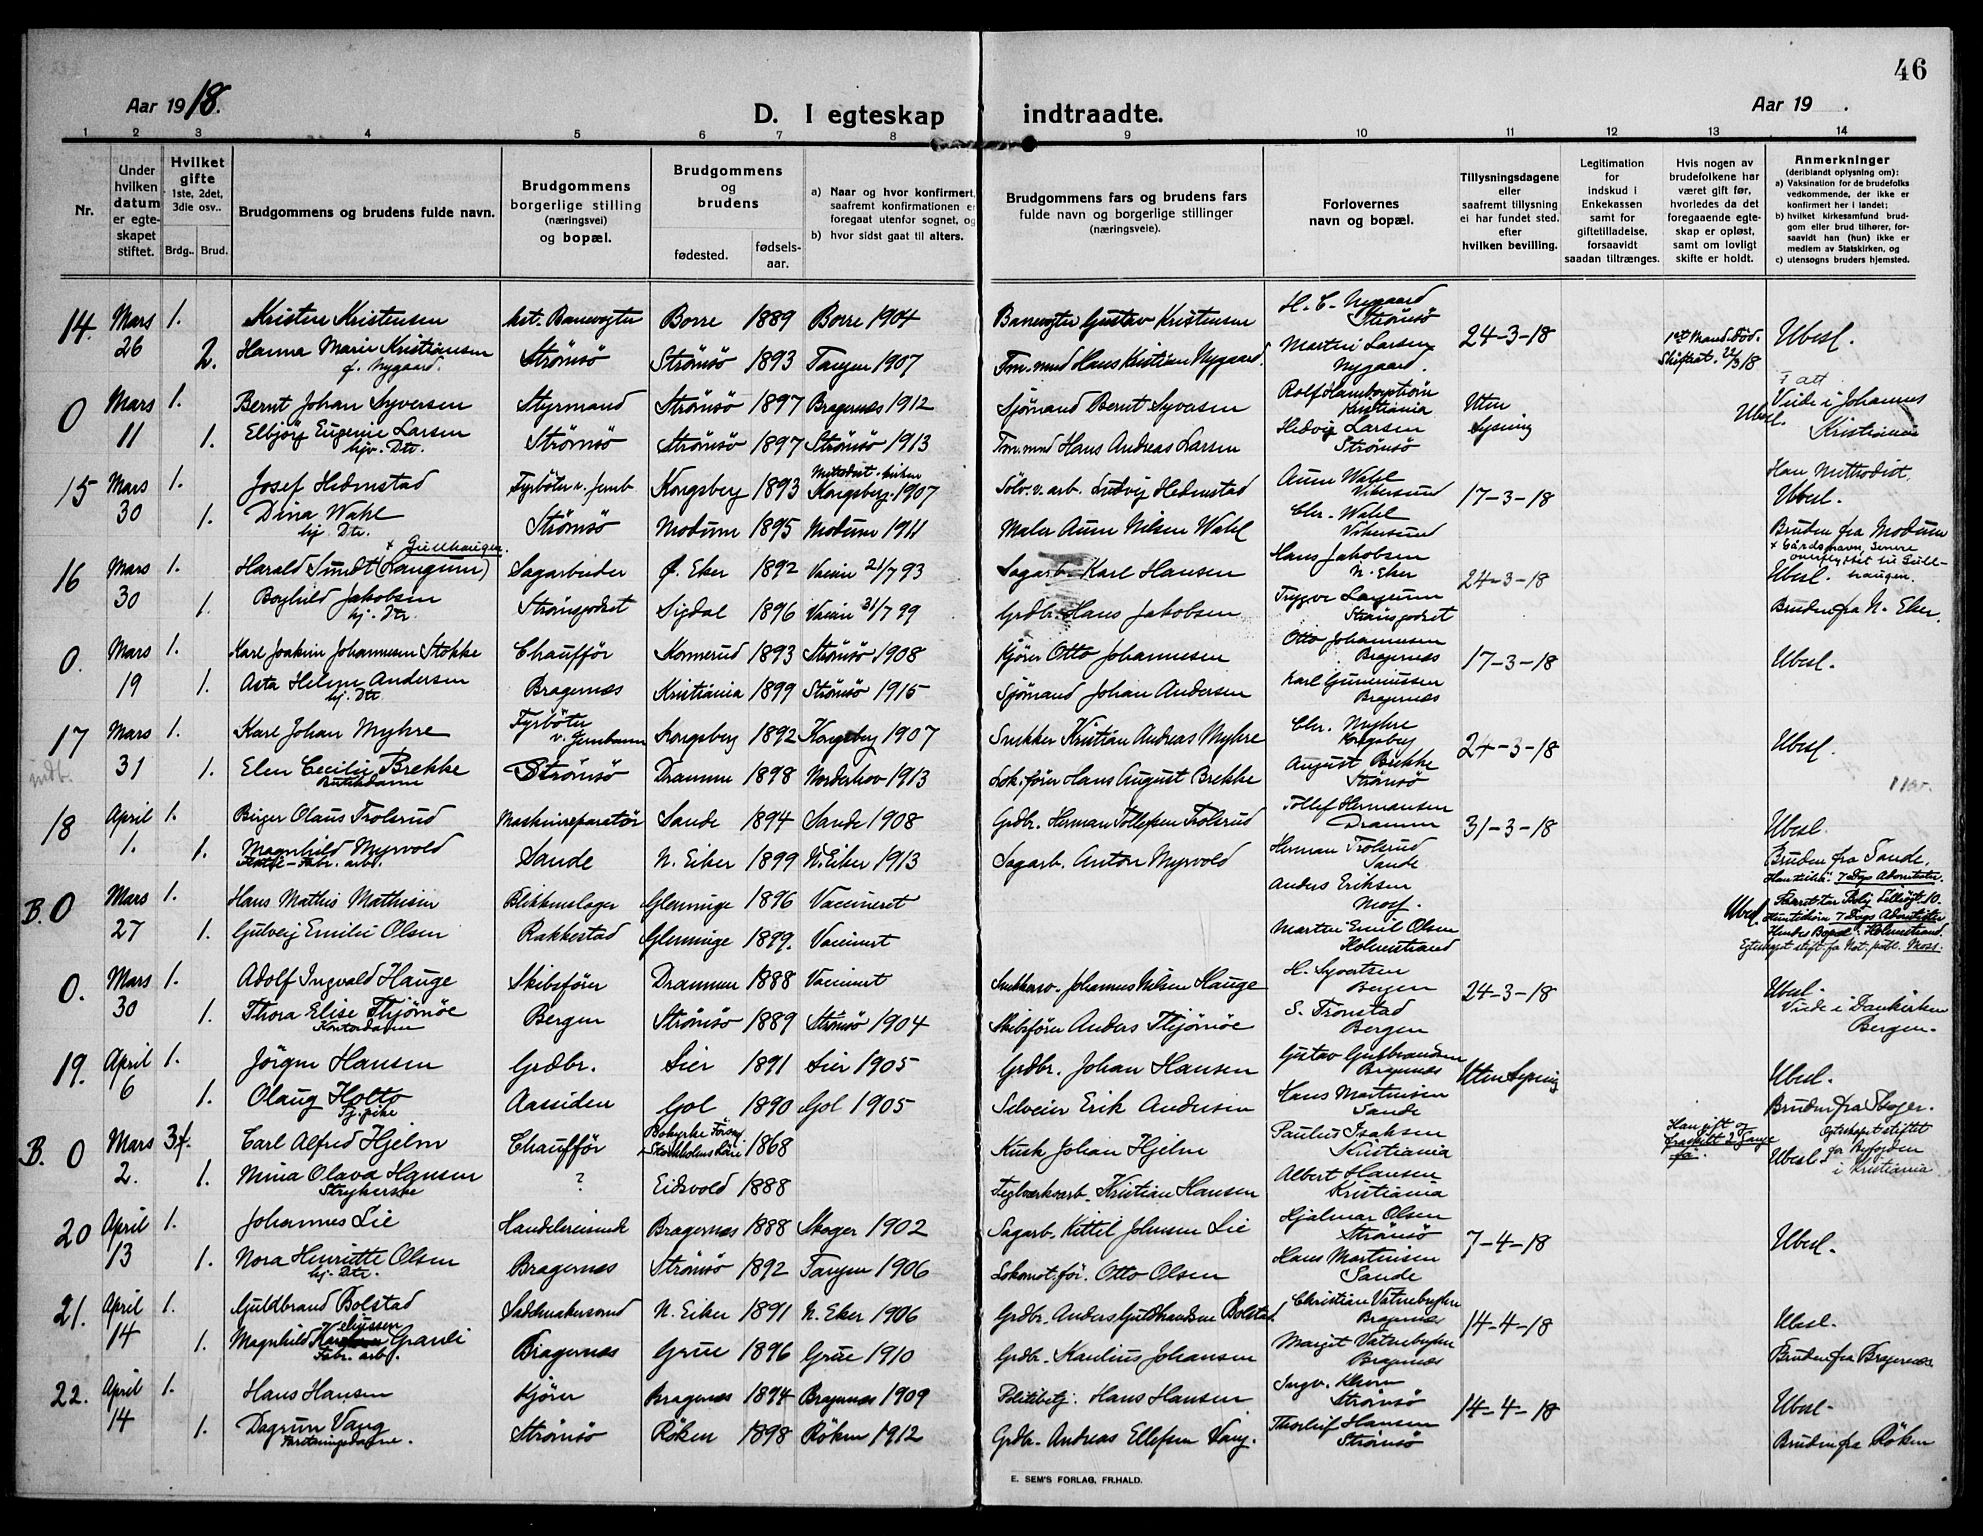 46
Aar 1918.
D. I egteskap indtraadte.
Aar 19 .
1 2 3 4 5 6 7 8 9 10 11 12 13 14
Nr.
Under hvilken datum er egteskapet stiftet.
Hvilket gifte 1ste, 2det, 3die osv..
Brdg.. Brud.
Brudgommens og brudens fulde navn.
Brudgommens borgerlige stilling (næringsvei) og bopæl.
Brudgommens og brudens
fødested. fødselsaar.
a) Naar og hvor konfirmert, saafremt konfirmationen er foregaat utenfor sognet, og
b) hvor sidst gaat til alters.
Brudgommens fars og brudens fars fulde navn og borgerlige stillinger (næringsveie).
Forlovernes navn og bopæl.
Tillysningsdagene eller saafremt tillysning ei har fundet sted. efter hvilken bevilling.
Legitimation for indskud i Enkekassen samt for giftetilladelse, forsaavidt saadan tiltrænges.
Hvis nogen av brudefolkene har været gift før, hvorledes da det foregaaende egteskap er opløst, samt om lovligt skifte er holdt.
Anmerkninger (deriblandt oplysning om):
a) Vaksination for de brudefolks vedkommende, der ikke er konfirmert her i landet;
b) hvilket kirkesamfund brudgom eller brud tilhører, forsaavidt han (hun) ikke er medlem av Statskirken, og
c) utensogns bruders hjemsted.
14. Mars 1. Kristen Kristensen Ast. Banevogter Borre 1889 Borre 1904 Banevogter Gustav Kristensen H. C. Nygaard Strömsö 24-3-18 1ste Mand. död. Ubesl.
26 2. Hanna Marie Kristiansen f. Nygaard. Strömsö Strömsö 1893 Tangen 1907 Tm.mnd Hans Kristian Nygaard. Martin Larsen Nygaard. Skifteat. 22/3 18
0 Mars 1. Bernt Johan Syversen Styrmand Strömsö 1897 Bragernæs 1912 Sjömand Bernt Syversen Kristiania Uten Lysning Ubesl. Viede i Johannes Kristiania
11 1. Elbjörg Eugenie Larsen hjv. Dtr. Strömsö Strömsö 1897 Strömsö 1913 Tm.mnd Hans Andreas Larsen Hedvig Larsen Strömsö
15 Mars 1. Josef Hedmstad Fyrböter v. Jernb Kongsberg 1893 Metodist-kirken Kongsberg 1907 Sölv.v.arb. Ludvig Hedmstad Aunn Wahl Vikersund 17-3-18 Han Methodist. Ubesl.
30 1. Dina Wahl hj. Dtr. Strömsö Modum 1895 Modum 1911 Maler Aunn Nilsen Wahl Chr. Wahl Vikersund Bruden fra Modum
16 Mars 1. Harald Sundt (Langum) x Gullhaugen. Sagarbeider Ø. Eker 1892 Vaccin 21/7 93 Sagarb. Karl Hansen Hans Jakobsen N. Eker 24-3-18 x Gårdsnavn, senere omskiftet til Gullhaugen. Ubesl.
30 1. Borghild Jakobsen hj. Dtr. Strömsgodset Sigdal 1896 Vaccin 31/7 99 Grdbr. Hans Jakobsen Trygve Langum Strömsgodset Bruden fra N. Eker.
0. Mars 1. Karl Joakim Johannesen Stokke Chauffför Konnerud 1893 Strömsö 1908 Kjörer Otto Johannesen Otto Johannesen Bragernæs 17-3-18 Ubesl.
19 1. Asta Helene Andersen hj. Dtr. Bragernæs Kristiania 1899 Strömsö 1915 Sjömand Johan Andersen Karl Gunnussen Bragernæs
17 Mars 1. Karl Johan Myhre Fyrböter v. Jernbanen Kongsberg 1892 Kongsberg 1907 Snekker Kristian Andreas Myhre Chr. Myhre Kongsberg 24-3-18 Ubesl.
indb. 31 1. Elen Cecilie Brekke Butikdame Strömsö Drammen 1898 Norderhov 1913 Lok.förer Hans August Brekke August Brekke Strömsö
18 April 1. Birger Olaus Trolsrud Maskinreparatör Sande 1894 Sande 1908 Grdbr. Herman Tollefsen Trolsrud Tollef Hermansen Drammen 31-3-18 Ubesl.
1. 1. Magnhild Myrvold Fabr. arb. Sande N. Eiker 1899 N. Eiker 1913 Sagarb. Anton Myrvold Herman Trolsrud Sande Bruden fra Sande.
B. 0 Mars 1. Hans Mathis Mathisen Blikkenslager Glemminge 1896 Vaccineret Anders Eriksen Moss. Ubesl.
27 1. Gulveig Emilie Olsen Rakkestad Glemminge 1899. Vaccinert Martin Emil Olsen Holmestrand Hendes Bopæl: Holmestrand. Egteskapet stift. fra Not. publ. Moss.
0. Mars 1. Adolf Ingvald Hauge Skibsförer Drammen 1888 Vaccinert Johannes Nilsen Hauge H. Syvertsen Bergen 24-3-18 Ubesl. Viede i Domkirken Bergen.
30 1. Thora Elise Thjömöe Kontordame Bergen Strömsö 1889 Strömsö 1904 Skibsförer Anders Thjömöe S. Tronstad Bergen
19. April 1. Jörgen Hansen Grdbr. Lier 1891 Lier 1905 Grdbr. Johan Hansen Gustav Gulbrandsen Bragernæs Uten Lysning Ubesl.
6 1. Olaug Holto Tj. pike Aassiden Gol 1890 Gol 1905 Selveier Erik Andersen Hans Martinsen Sande Bruden fra Skoger.
B. 0 Mars 3f. Carl Alfred Hjelm Chauffför Stockholms län 1868 Kusk Johan Hjelm Paulus Isaksen Kristiania Han gift og fraskilt 2 Gange för. Egteskapet stiftet fra Byfogden i Kristiania Ubesl.
2. 1. Mina Olava Hansen Strykerske ? Eidsvold 1888 Teglværkarb. Kristian Hansen Albert Hansen Kristiania
20 April 1. Johannes Lie Handelsreisende Bragernæs 1888 Skoger 1902 Sagarb. Kittel Johnsen Lie Hjalmar Olsen Strömsö 7-4-18 Ubesl.
13 1. Nora Henriette Olsen hj. Dtr. Bragernæs Strömsö 1892 Tangen 1906 Lokomot.för. Otto Olsen Hans Martinsen Sande
21. April 1. Guldbrand Bolstad Sadelmakersvend N. Eiker 1891 N. Eker 1906 Grdbr. Anders Guldbrandsen Bolstad. Christian Vatnebryhn Bragernæs 14-4-18 Ubesl.
14 1. Magnhild Granli Fabr. arb. Bragernæs Grue 1896 Grue 1910 Grdbr. Kaulius Johansen Margit Vatnebryhn Bragernæs Bruden fra Bragernæs
22. April 1. Hans Hansen Kjörer Bragernæs 1894 Bragernæs 1909 Politibetj. Hans Hansen Ingv. Klevn Strömsö 14-4-18 Ubesl.
14 1. Dagrun Vang Forretningsdame. Strömsö Röken 1898 Röken 1912 Grdbr. Andreas Ellefsen Vang. Thorleif Hansen Strömsö Bruden fra Röken
E. SEM'S FORLAG, FR.HALD.